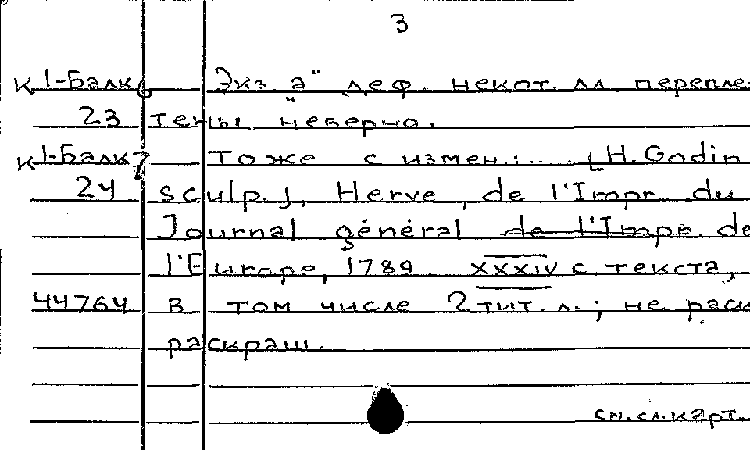 3
к I-Балк. Экз. "а" деф. некот. лл. перепле-
23 тены неверно.
к I-Балк 7 Тоже с измен.: ... [H. Godin
24 sculp.], Herve, de l'Impr. du
Journal général de l'Impr. de
l'Europe, 1789 XXXIV с. текста,
44764 в том числе 2 тит. л.; не раск
раскраш.
см. сл. карт.